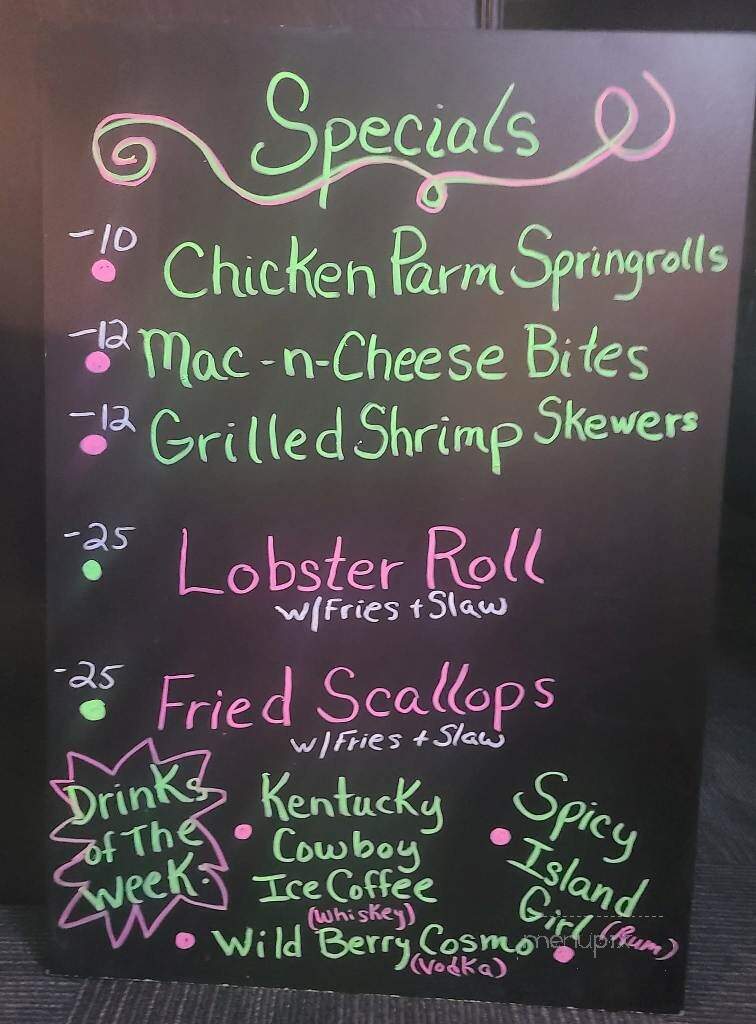 Specials
-10 Chicken Parm Springrolls
-12 Mac-n-Cheese Bites
-12 Grilled Shrimp Skewers
-25 Lobster Roll
w/Fries + Slaw
-25 Fried Scallops
w/Fries + Slaw
Drinks
of The
Week.
Kentucky
Cowboy
Ice Coffee
(Whiskey)
Spicy
Island
Girl (Rum)
Wild Berry Cosmo
(Vodka)
menupix